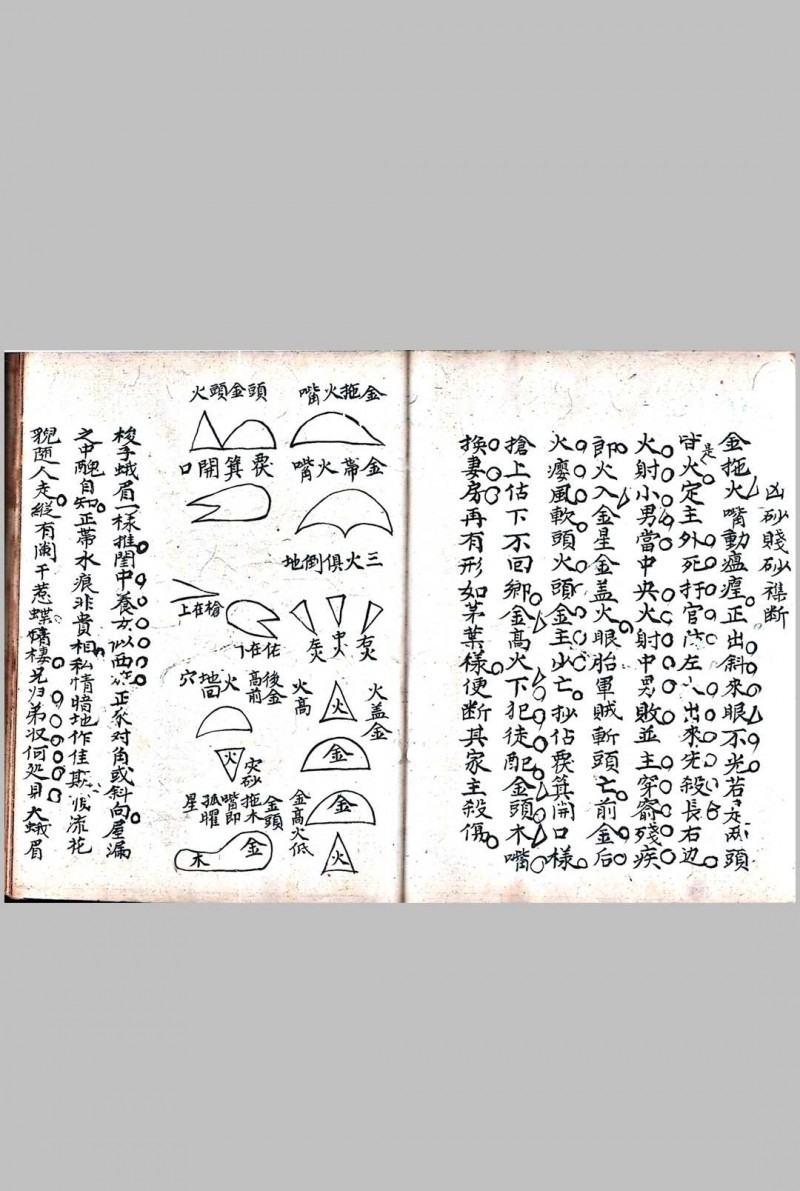 凶砂賤砂襍断
金拖火嘴動瘟瘟正出斜來眼不光若是兩頭
皆是火定主外死打官 左 出來先殺長右边
火射小男當中央火射中男敗並主穿窬殘疾
郎火入金星金盖火眼胎軍賊斬頭亡前金后
火瘿風軟頭火頭金主少亡抄估 箕開口樣
搶上估下不回鄉金高火下犯徒配金頭木嘴
換妻房再有形如茅葉樣便断其家主殺傷
金拖火嘴
頭金頭火
金帶火嘴
箕開口
三火俱倒地
右火
中火
左火
估在下
搶在上
火盖金
火
金
火高
後金前高
火回地穴
火
尖砂
金高火低
金
火
金頭拖木嘴即孤曜星
金
木
梭子蛾眉一樣推閨中養女似西 正 对角或斜向屋漏
之中醜自知正帶水痕非貴相私情暗地作佳期 流花
猊随人走縱有闌干惹蝶 棲兄归弟收何処貝大蛾眉